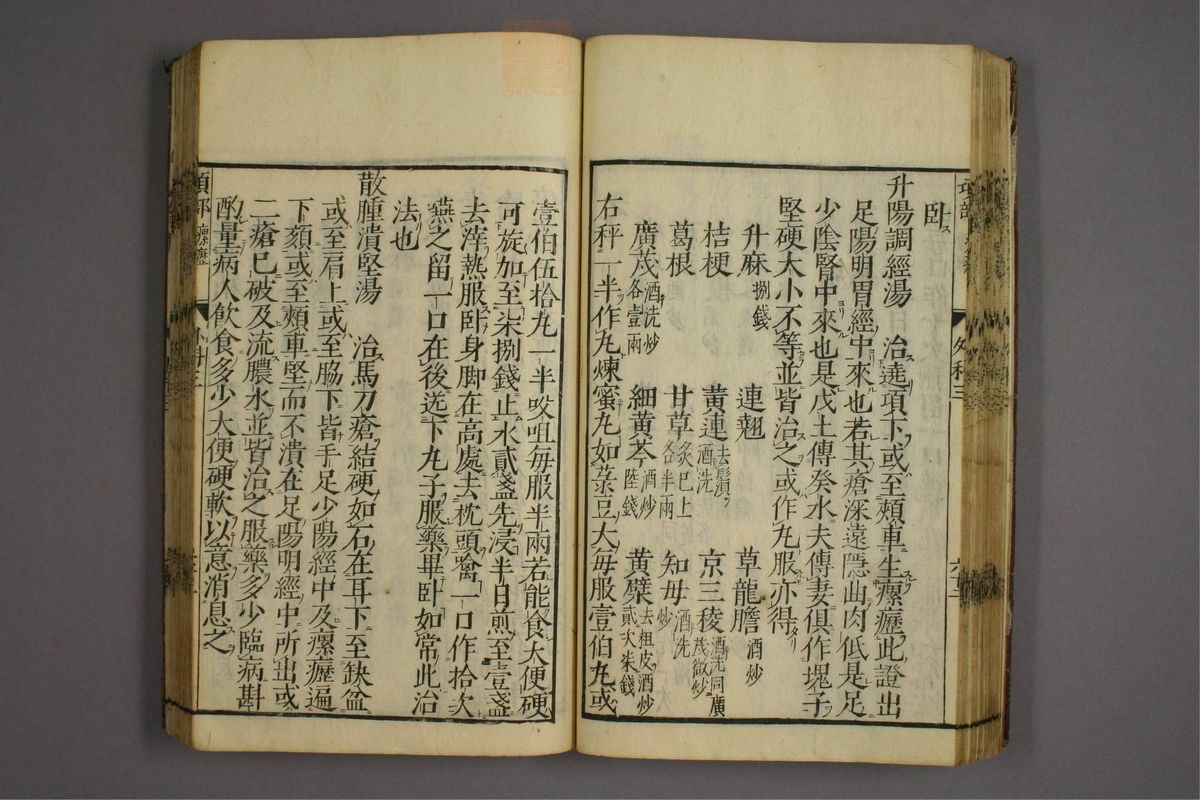 臥
升陽調經湯 治遶項下或至頰車生瘰癧此證出
足陽明胃經中來也若其瘡深遠隱曲肉低是足
少陰腎中來也是戊土傳癸水夫傳妻俱作塊子
堅硬大小不等並皆治之或作丸服亦得
升麻捌錢 連翹 草龍膽酒炒
桔梗 黃連去鬚酒洗 京三稜酒洗同廣茂微炒
葛根 甘草炙已上各半兩 知母酒洗炒
廣茂酒洗炒各壹兩 細黃芩酒炒陸錢 黃蘗去粗皮酒炒貳次柒錢
右秤一半作丸煉蜜丸如菉豆大每服壹伯丸或
壹伯伍拾丸一半㕮咀每服半兩若能食大便硬
可旋加至柒捌錢止水貳盞先浸半日煎至壹盞
去滓熱服臥身脚在高處去枕頭噙一口作拾次
嚥之留一口在後送下丸子服藥畢臥如常此治
法也
散腫潰堅湯 治馬刀瘡結硬如石在耳下至缺盆
或至肩上或至脇下皆手足少陽經中及瘰癧遍
下頦或至頰車堅而不潰在足陽明經中所出或
二瘡已破及流膿水並皆治之服藥多少臨病斟
酌量病人飲食多少大便硬軟以意消息之